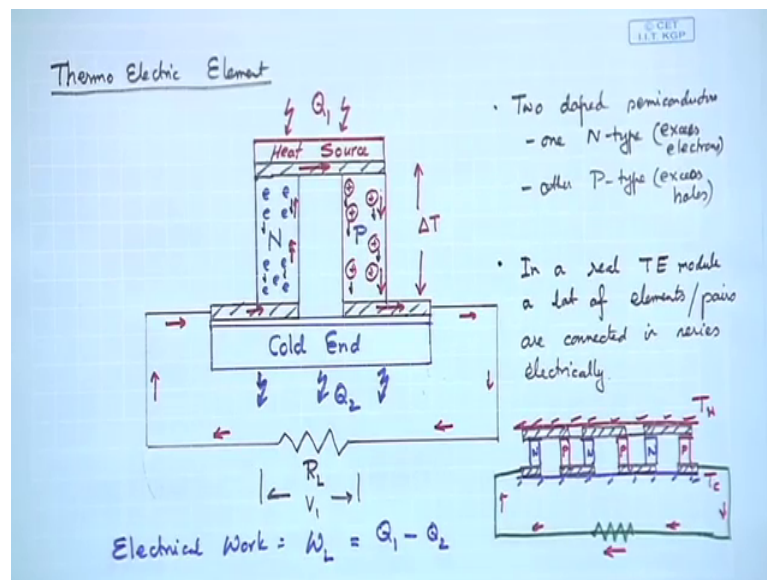 © CET
I.I.T. KGP
Thermo Electric Element
Q1
Heat Source
e e
e e
e e
N
e e
e e
P
ΔT
Cold End
Q2
RL
V1
Electrical Work = WL = Q1 - Q2
• Two doped semiconductors
- one N-type (excess electrons)
- other P-type (excess holes)
• In a real TE module
a lot of elements/pairs
are connected in series
electrically.
TH
N P N P N P
TC